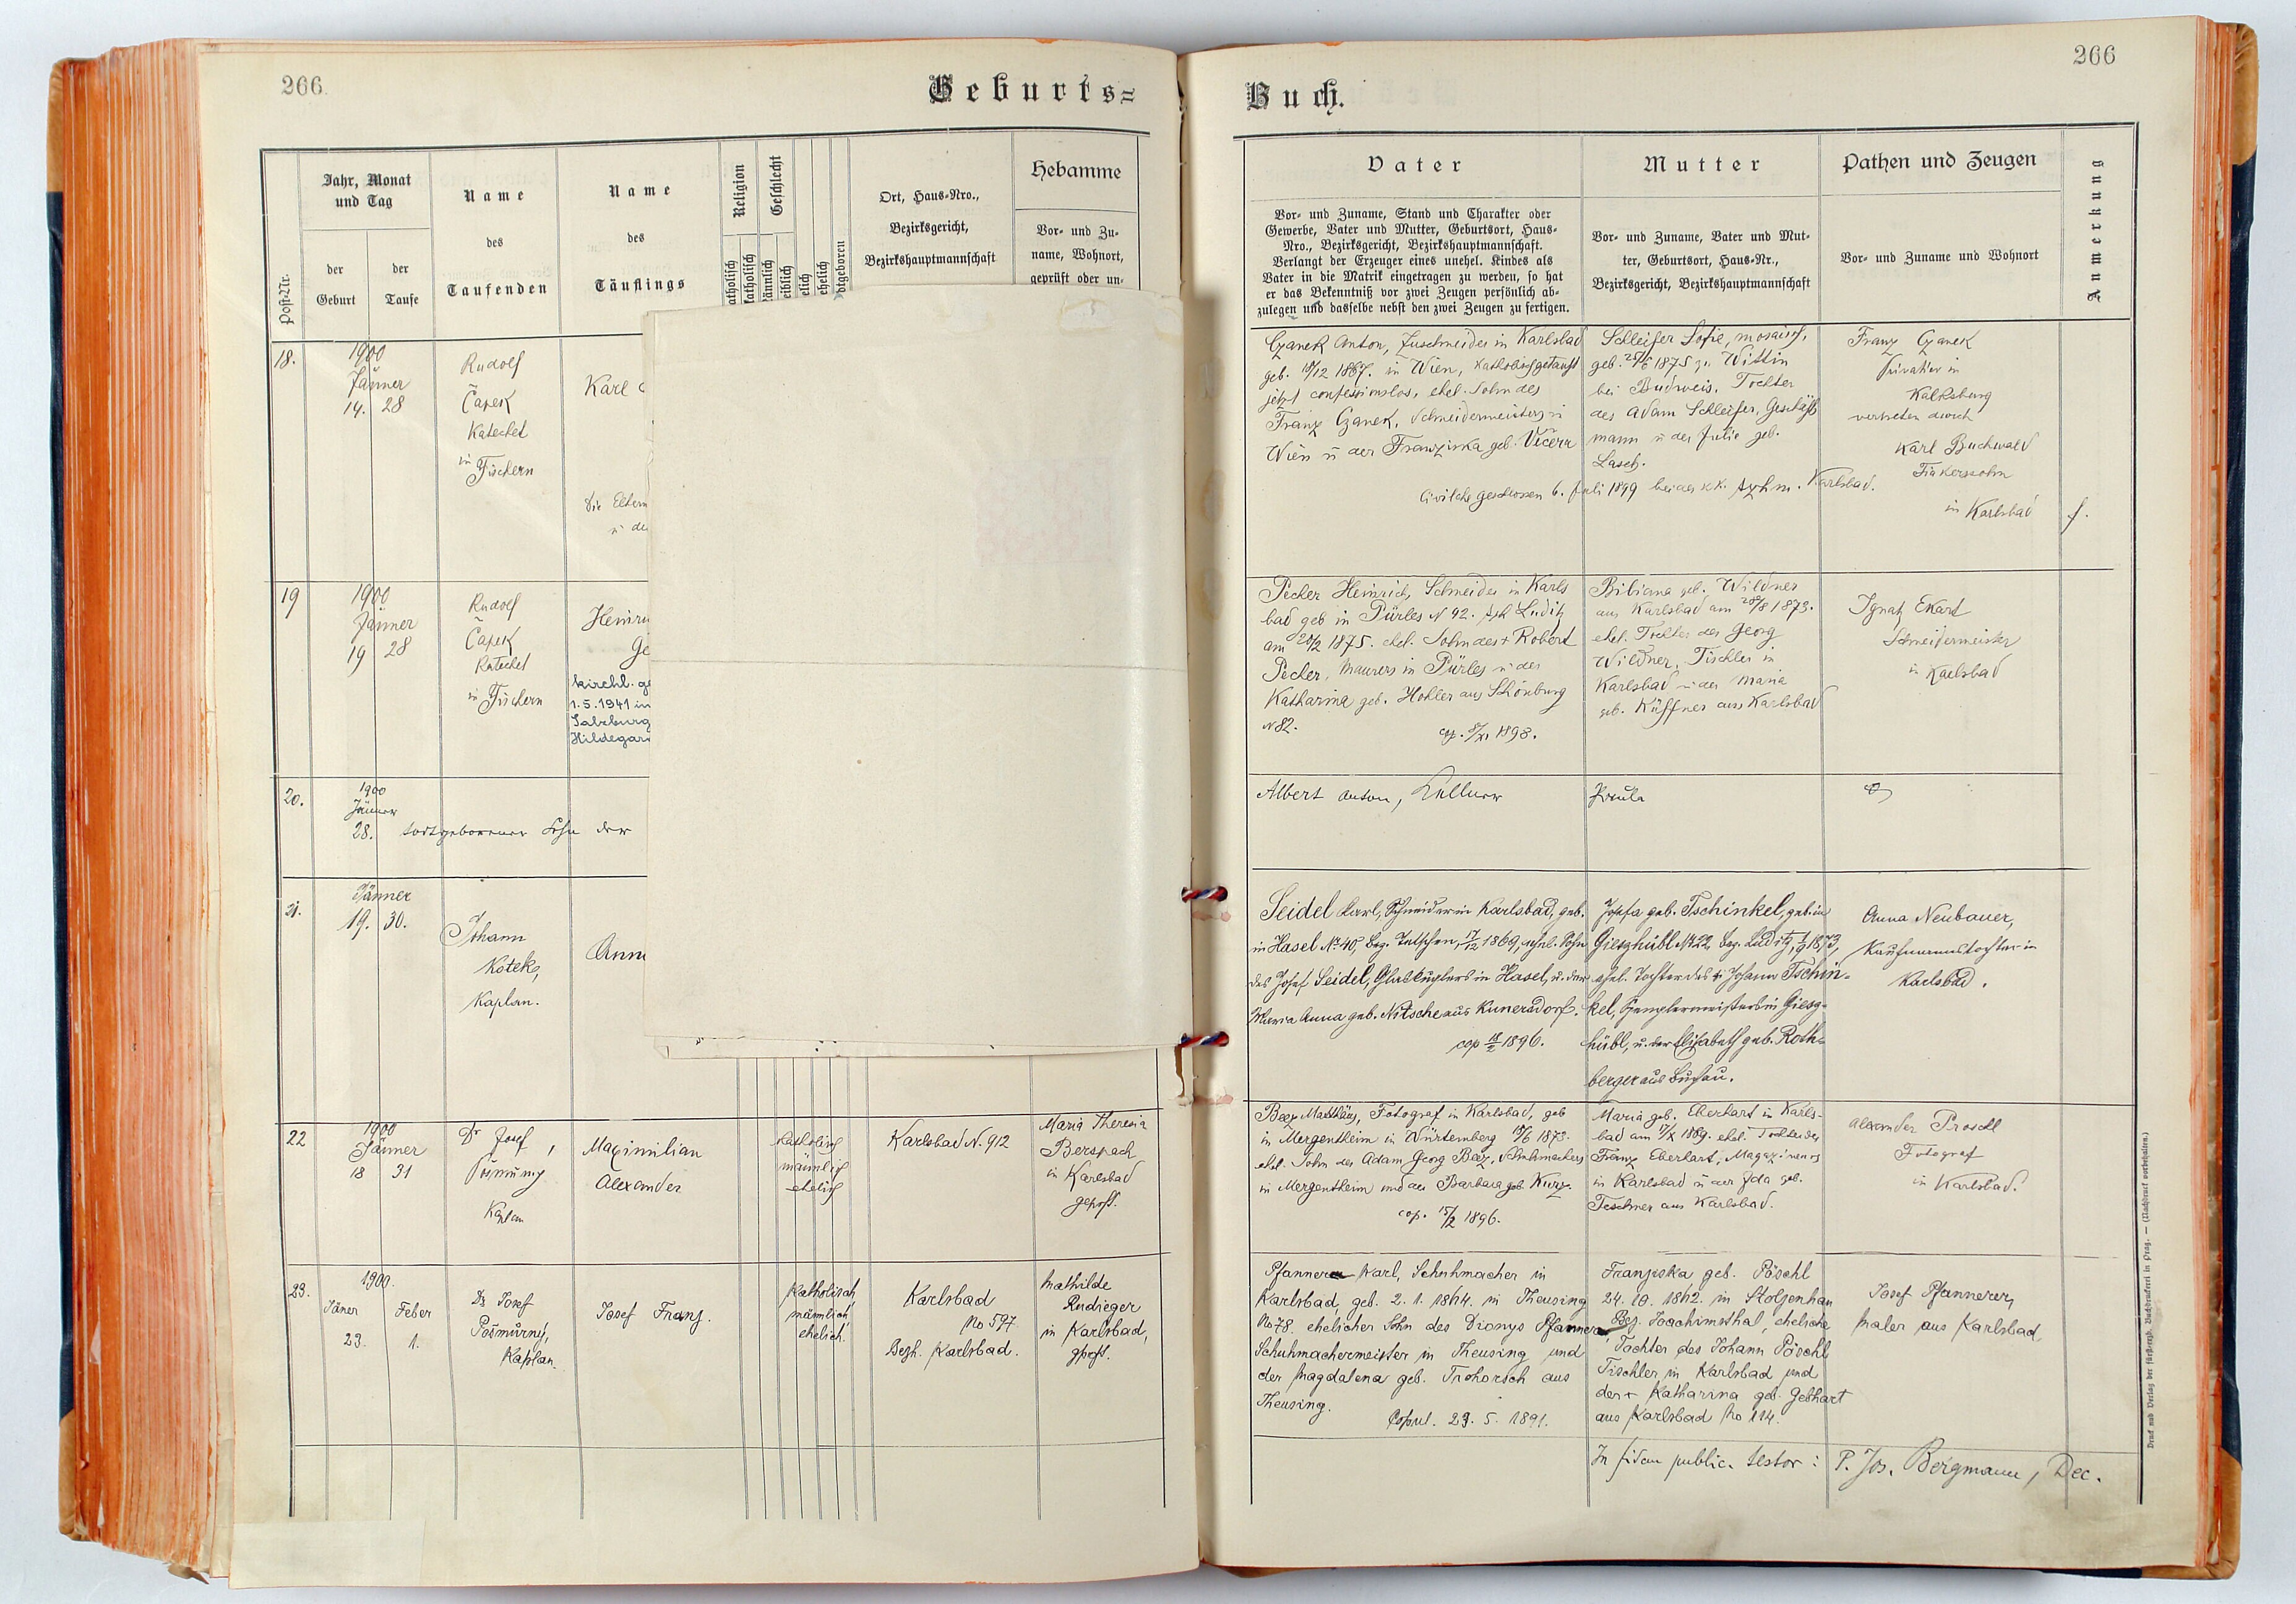 266.
Geburts=
Post-Nr.
Jahr, Monat
und Tag
der
Geburt
der
Taufe
Name
des
Taufenden
Name
des
Täuflings
Religion
Geschlecht
atholisch
katholisch
ännlich
eiblich
elich
ehelich
dtgeboren
Ort, Haus-Nro.,
Bezirksgericht,
Bezirkshauptmannschaft
Hebamme
Vor- und Zu-
name, Wohnort,
geprüft oder un-
18.
1900
Jänner
14. 28
Rudolf
Čapek
Katechet
in Fischern
Karl
Die Eltern
19
1900
Jänner
19 28
Rudolf
Čapek
Katechet
in Fischern
Heinri
Ge
kirchl. ge
1.5.1941 in
Salzburg
Hildegard
20.
1900
Jänner
28. todtgeborener Sohn der
21.
Jänner
19. 30.
Johann
Kotek,
Kaplan.
Ann
22
1900
Jänner
18 31
Dr Josef
Kaplan
Maximilian
Alexander
katholisch
männlich
ehelich
Karlsbad N. 912
Maria Theresia
Berspach
in Karlsbad
geprft.
23.
1900.
Jäner Feber
23. 1.
Dr Josef
Pošmůrný,
Kaplan.
Josef Franz.
Katholisch
männlich
ehelich
Karlsbad
No 597
Bezh. Karlsbad.
Mathilde
Rudieger
in Karlsbad,
gprft.
266
Buch.
Vater
Vor- und Zuname, Stand und Charakter oder
Gewerbe, Vater und Mutter, Geburtsort, Haus-
Nro., Bezirksgericht, Bezirkshauptmannschaft.
Verlangt der Erzeuger eines unehel. Kindes als
Vater in die Matrik eingetragen zu werden, so hat
er das Bekenntniß vor zwei Zeugen persönlich ab-
zulegen und dasselbe nebst den zwei Zeugen zu fertigen.
Mutter
Vor- und Zuname, Vater und Mut-
ter, Geburtsort, Haus-Nr.,
Bezirksgericht, Bezirkshauptmannschaft
Pathen und Zeugen
Vor- und Zuname und Wohnort
Anmerkung
Czanek Anton, Zuschneider in Karlsbad
geb. 10/12 1867. in Wien, katholisch getauft
jetzt confessionslos, ehel. Sohn des
Franz Czanek, Schneidermeisters in
Wien u der Franziska geb. Večera
Schleifer Sofie, mosaisch,
geb. 25/6 1875 zu Wittin
bei Budweis, Tochter
des Adam Schleifer, Geschäfts
mann u der Julie geb.
Lasch.
Civilehe geschlossen 6. Juli 1899 bei der k.k. Bzhm. Karlsbad.
Franz Czanek
Privatier in
Kalksburg
vertreten durch
Karl Buchwald
Fiakerssohn
in Karlsbad
f.
Pecher Heinrich, Schneider in Karls
bad geb in Pürles N 92. Bzk Luditz
am 20/2 1875. ehel. Sohn des + Robert
Pecher, Maurers in Pürles u der
Katharina geb. Hohler aus Schönburg
N 82.
cop. 8/XI 1898.
Bibiana geb. Wildner
aus Karlsbad am 28/8 1873.
ehel. Tochter des Georg
Wildner, Tischler in
Karlsbad u der Maria
geb. Küffner aus Karlsbad
Ignatz Ekart
Schneidermeister
in Karlsbad
Albert Anton, Kellner
Paula
Seidel Karl, Schneider in Karlsbad, geb.
in Hasel No 40, Bez. Tetschen, 17/12 1869, ehel. Sohn
des Josef Seidel, Glaskuglers in Hasel, u. der
Maria Anna geb. Nitsche aus Kunersdorf.
cop 18/2 1896.
Josefa geb. Tschinkel, geb. in
Gieszhübl No 22, Bez. Luditz, 1/9 1873,
ehel. Tochter des + Johann Tschin-
kel, Spenglermeisters in Giesz-
hübl, u. der Elisabeth geb. Roth-
berger aus Buchau.
Anna Neubauer,
Kaufmannstochter in
Karlsbad.
Beez Matthäus, Fotograf in Karlsbad, geb
in Mergentheim in Würtemberg 18/6 1873.
ehel. Sohn des Adam Georg Beez, Schuhmachers
in Mergentheim und der Barbara geb. Kurz.
cop. 15/2 1896.
Maria geb. Eberhart in Karls-
bad am 17/X 1869. ehel. Tochter des
Franz Eberhart, Magazineurs
in Karlsbad u der Ida geb.
Teschner aus Karlsbad.
Alexander Proschl
Fotograf
in Karlsbad.
Pfannerer Karl, Schuhmacher in
Karlsbad, geb. 2. 1. 1864. in Theusing
No 78. ehelicher Sohn des Dionys Pfannerer
Schuhmachermeister in Theusing und
der Magdalena geb. Trohorsch aus
Theusing.
Copul. 23. 5. 1891.
Franziska geb. Pöschl
24. 10. 1862. in Stolzenhan
Bez. Joachimsthal, eheliche
Tochter des Johann Pöschl
Tischler in Karlsbad und
der + Katharina geb. Gebhart
aus Karlsbad No 114.
Josef Pfannerer,
Maler aus Karlsbad.
In fidem public. testor: P. Jos. Bergmann, Dec.
Druck und Verlag der fürsterzb. Buchdruckerei in Prag. — (Nachdruck vorbehalten.)